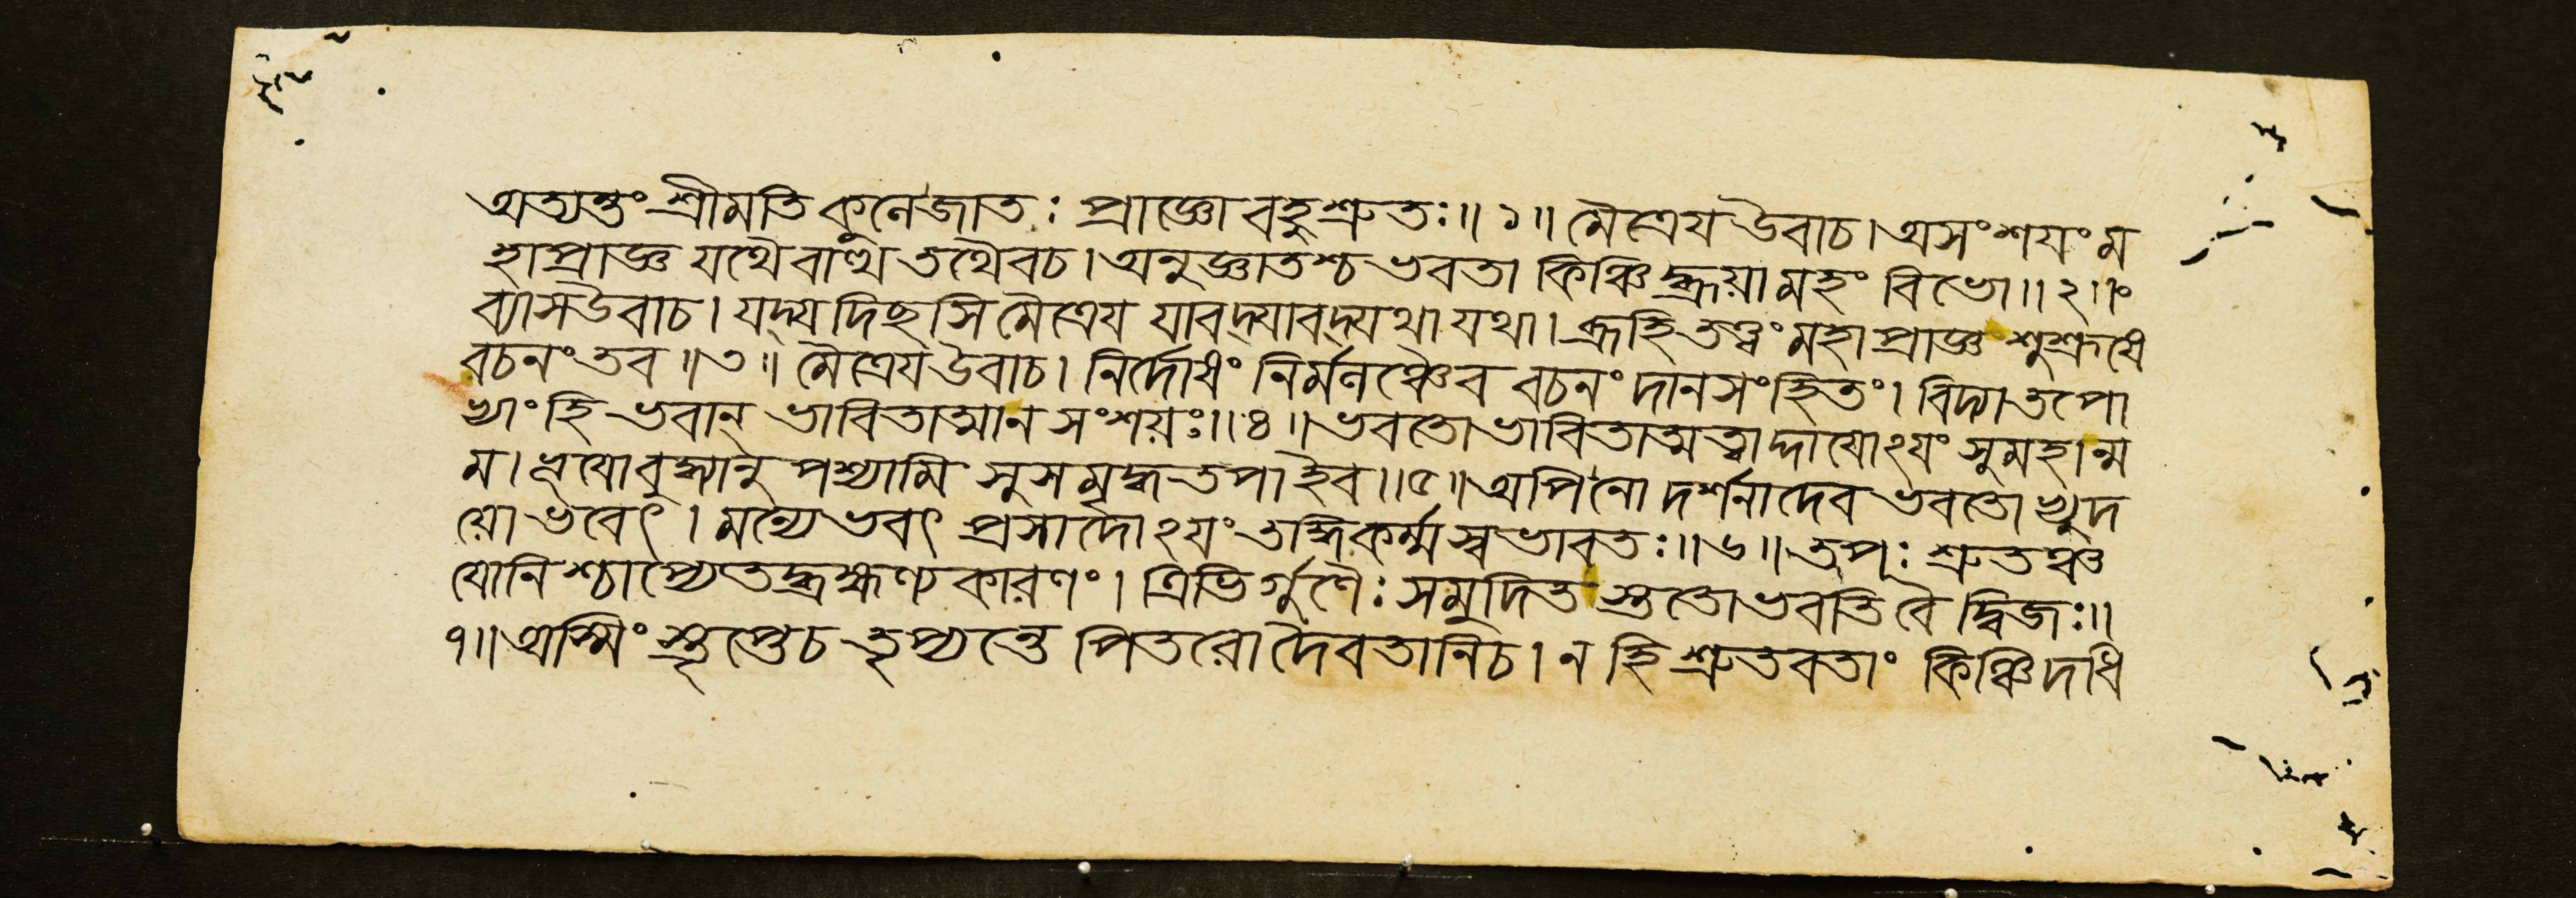 অত্যন্তং শ্রীমতি কুলে জাতঃ প্রাজ্ঞো বহুশ্রুতঃ॥ ১॥ মৈত্রেয উবাচ। অসংশযং ম
হাপ্রাজ্ঞ যথৈবাত্থ তথৈবচ। অনুজ্ঞাতশ্চ ভবতা কিঞ্চিদ্ব্রূয়ামহং বিভো॥ ২॥
ব্যাসউবাচ। যদ্যদিছসি মৈত্রেয যাবদ্যাবদ্যথা যথা। ব্রূহি তত্ত্বং মহাপ্রাজ্ঞ শুশ্রূষে
বচনং তব॥ ৩॥ মৈত্রেযউবাচ। নির্দোষং নির্মলঞ্চৈব বচনং দানসংহিতং। বিদ্যাতপো
ভ্যাং হি ভবান্ ভাবিতাত্মা ন সংশয়ঃ॥ ৪॥ ভবতো ভাবিতাত্মত্বাদ্দাযোঽযং সুমহান্ম
ম। ভূযো বুদ্ধ্যানুপশ্যামি সুসমৃদ্ধতপা ইব॥ ৫॥ অপি নো দর্শনাদেব ভবতোভ্যুদ
য়ো ভবেৎ। মন্যে ভবৎ প্রসাদোঽযং তদ্ধি কর্ম্ম স্বভাবতঃ॥ ৬॥ তপঃ শ্রুতঞ্চ
যোনিশ্চাপ্যেতদ্ব্রাহ্মণ্যকারণং। ত্রিভির্গুণৈঃ সমুদিতস্ততো ভবতি বৈ দ্বিজঃ॥
৭॥ অস্মিংস্তৃপ্তেচ তৃপ্যন্তে পিতরো দৈবতানিচ। ন হি শ্রুতবতাং কিঞ্চিদধি